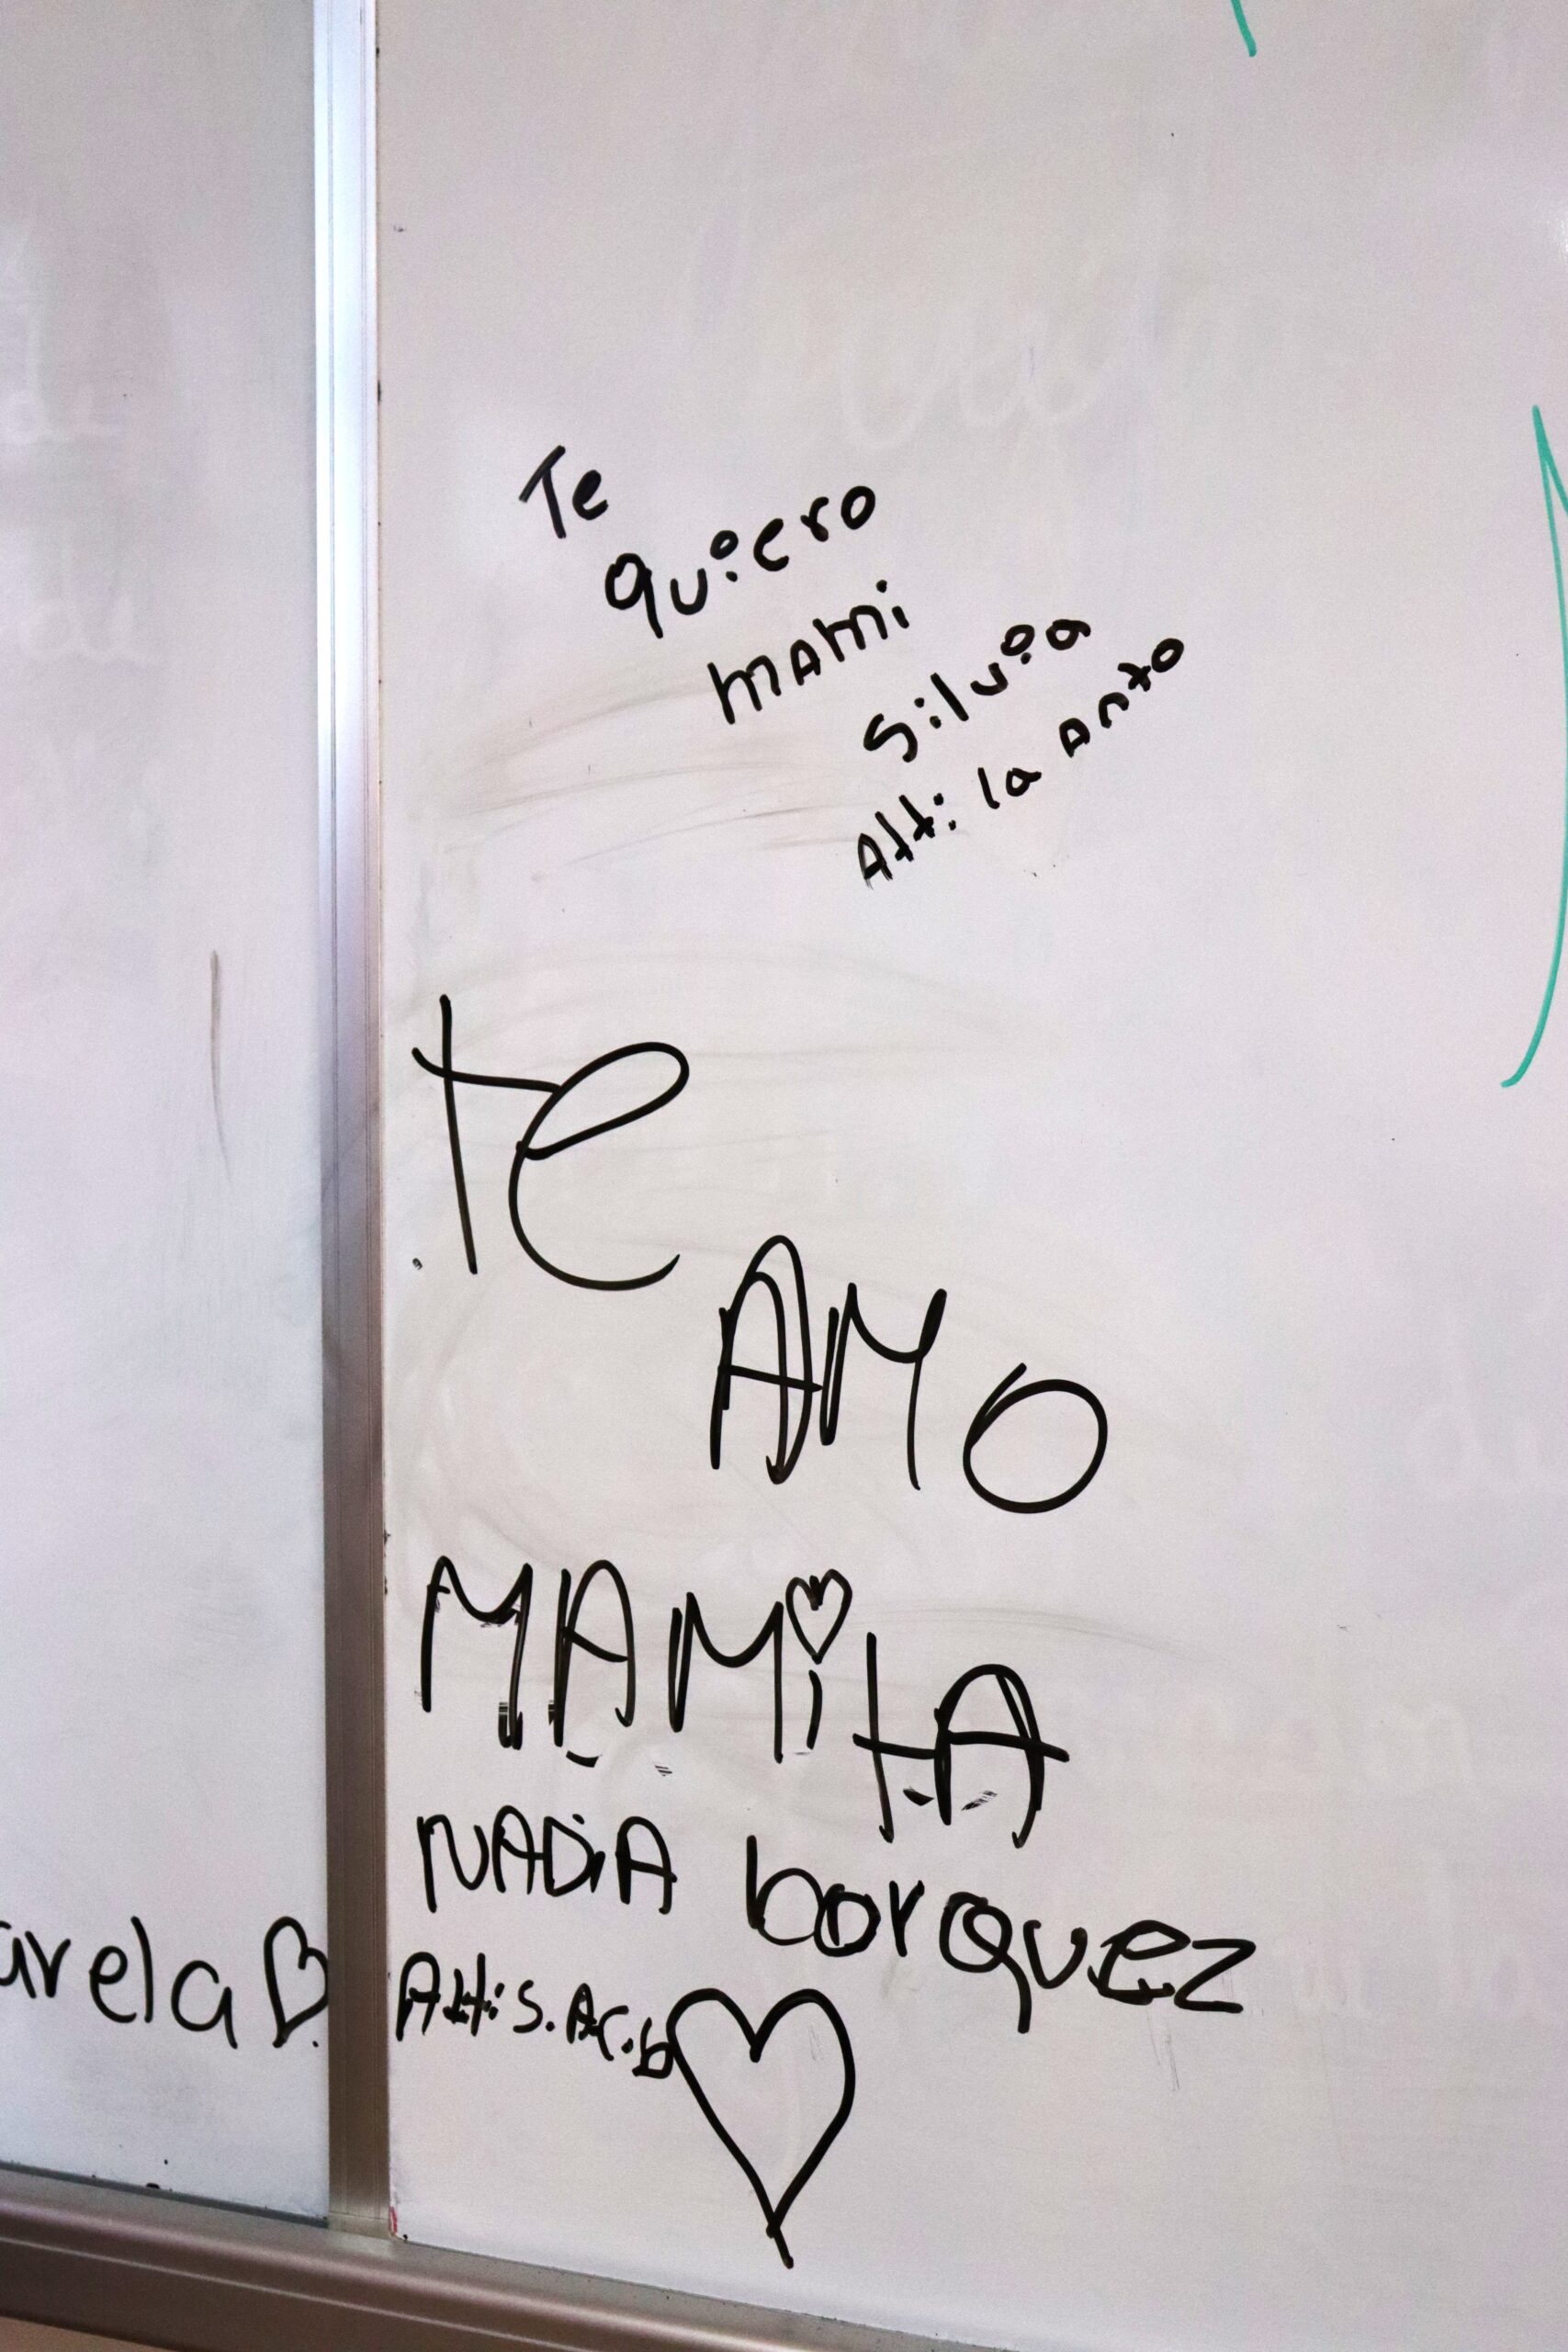 Te
quiero
mami
Silvia
Att: la anto
te
AMO
MAMitA
NADiA borquez
Att: S.A.C.b
arela